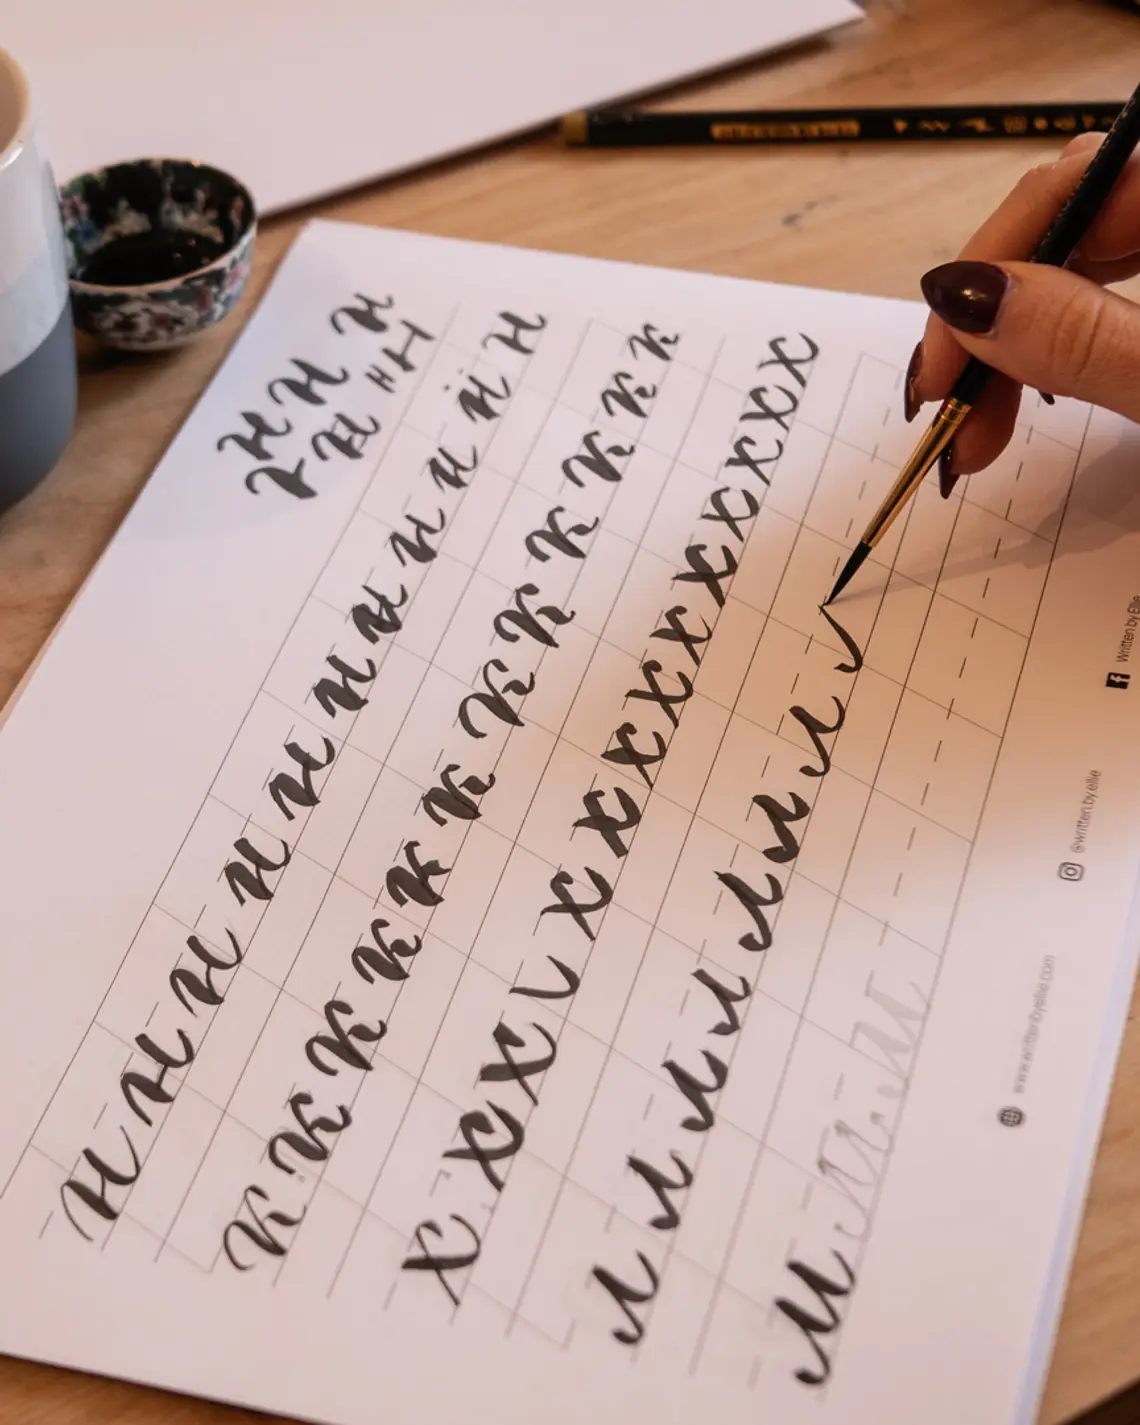 H H H
K H H H
H H H H H H H H H H H
K K K K K K K K K K K K
X X X X X X X X X X X X X
N N N N N N N
M M M
www.writtenbyellie.com @written.by.ellie Written by Ellie